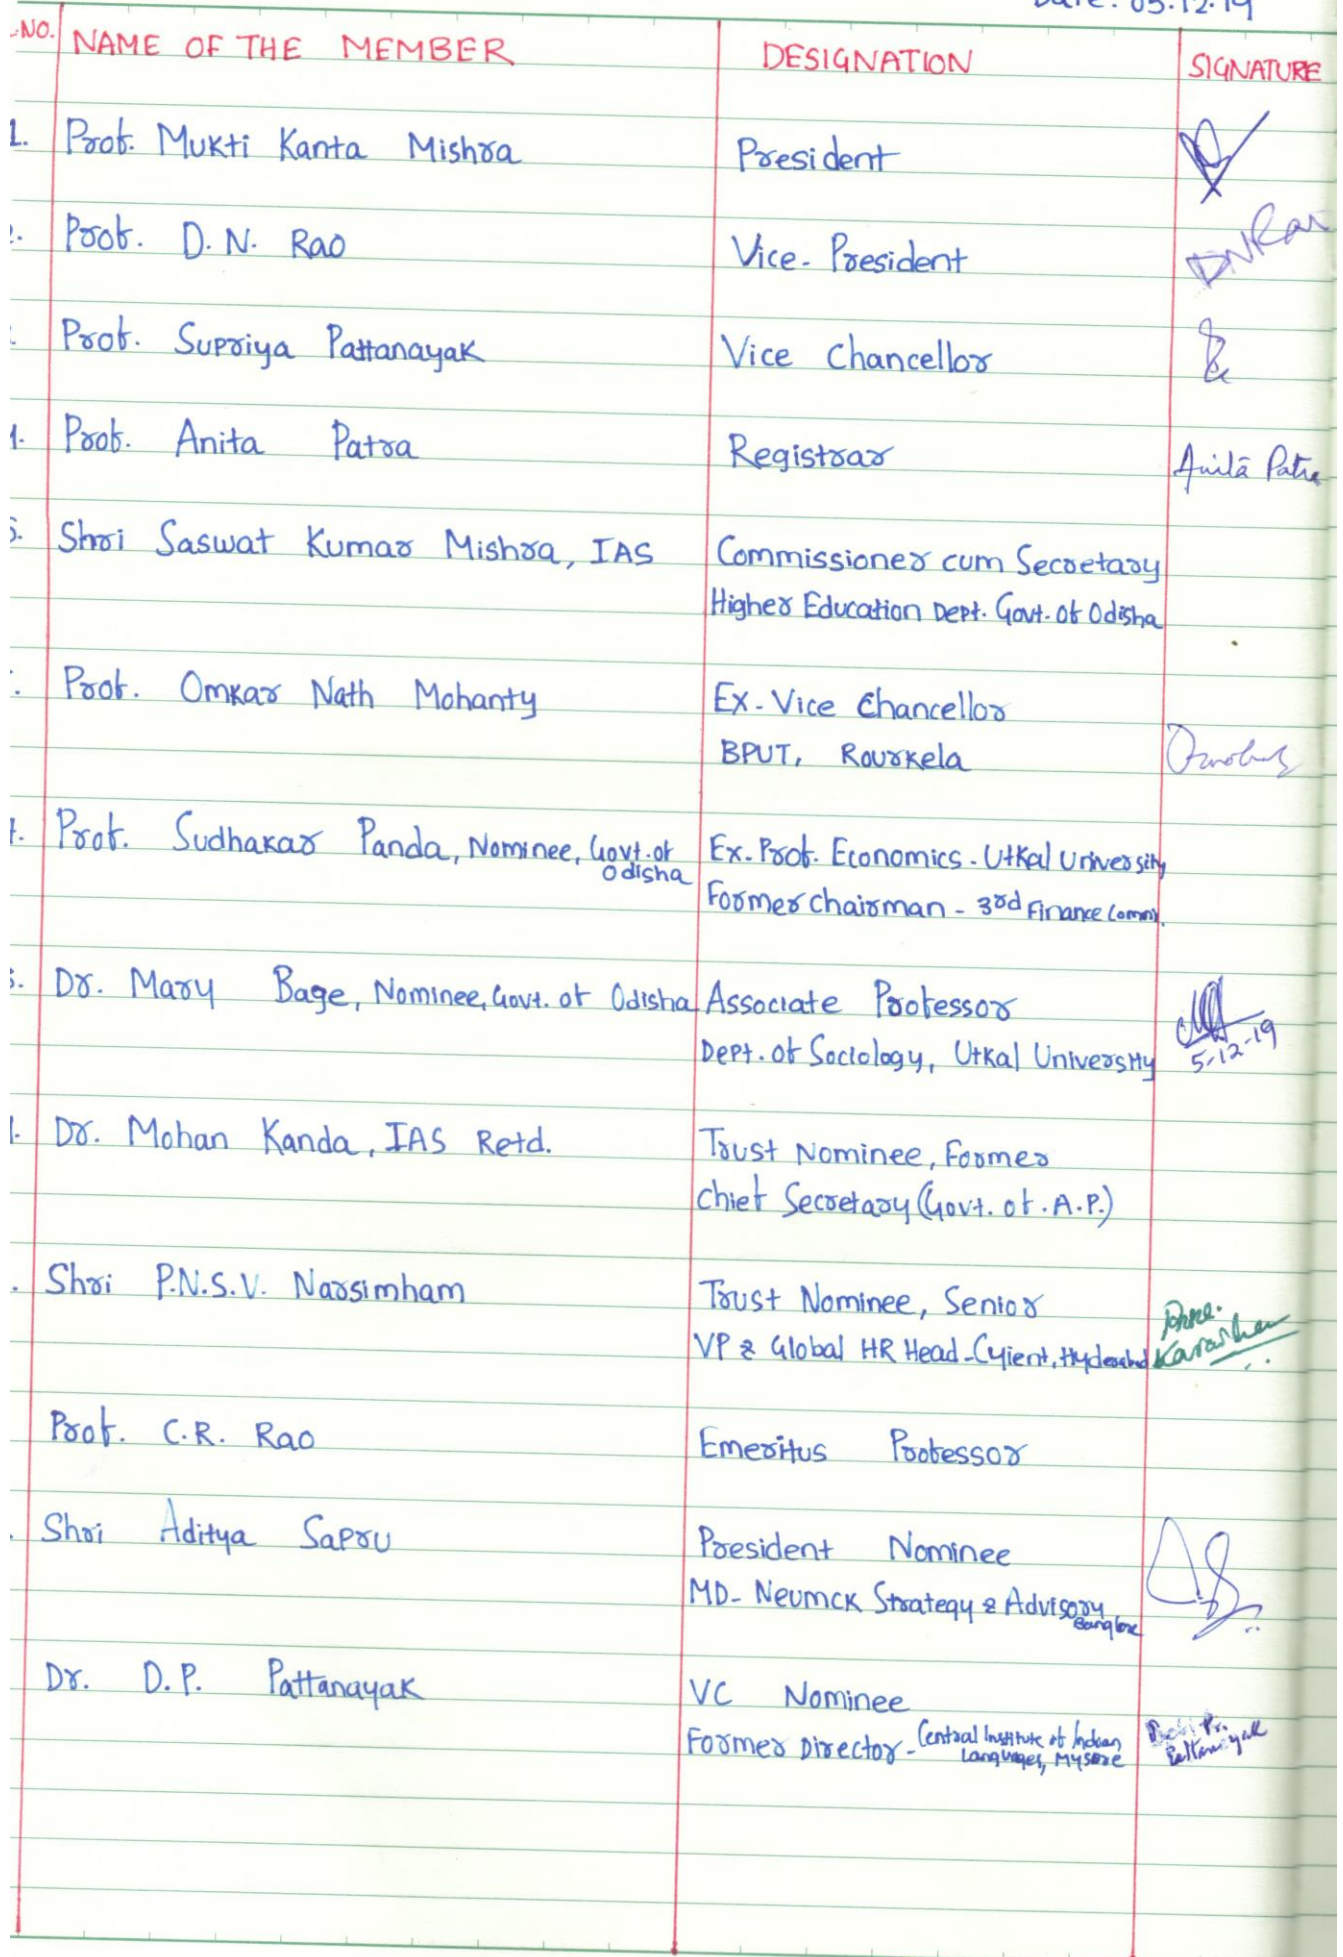 Date: 05.12.19
NO. NAME OF THE MEMBER DESIGNATION SIGNATURE
1. Prof. Mukti Kanta Mishra President
Prof. D. N. Rao Vice - President DNRao
Prof. Supriya Pattanayak Vice Chancellor
Prof. Anita Patra Registrar Anita Patra
Shri Saswat Kumar Mishra, IAS Commissioner cum Secretary
Higher Education Dept. Govt. of Odisha
Prof. Omkar Nath Mohanty Ex - Vice Chancellor
BPUT, Rourkela
Prof. Sudhakar Panda, Nominee, Govt. of Ex. Prof. Economics - Utkal University
Odisha
Former Chairman - 3rd Finance Comm.
Dr. Mary Bage, Nominee, Govt. of Odisha Associate Professor
Dept. of Sociology, Utkal University
5-12-19
Dr. Mohan Kanda, IAS Retd. Trust Nominee, Former
Chief Secretary (Govt. of. A.P.)
Shri P.N.S.V. Narsimham Trust Nominee, Senior
VP & Global HR Head - Cyient, Hyderabad
Prof. C.R. Rao Emeritus Professor
Shri Aditya Sapru President Nominee
MD - Neumck Strategy & Advisory
Banglore
Dr. D.P. Pattanayak VC Nominee
Former Director - Central Institute of Indian
Languages, Mysore
Pr.
Pattanayak